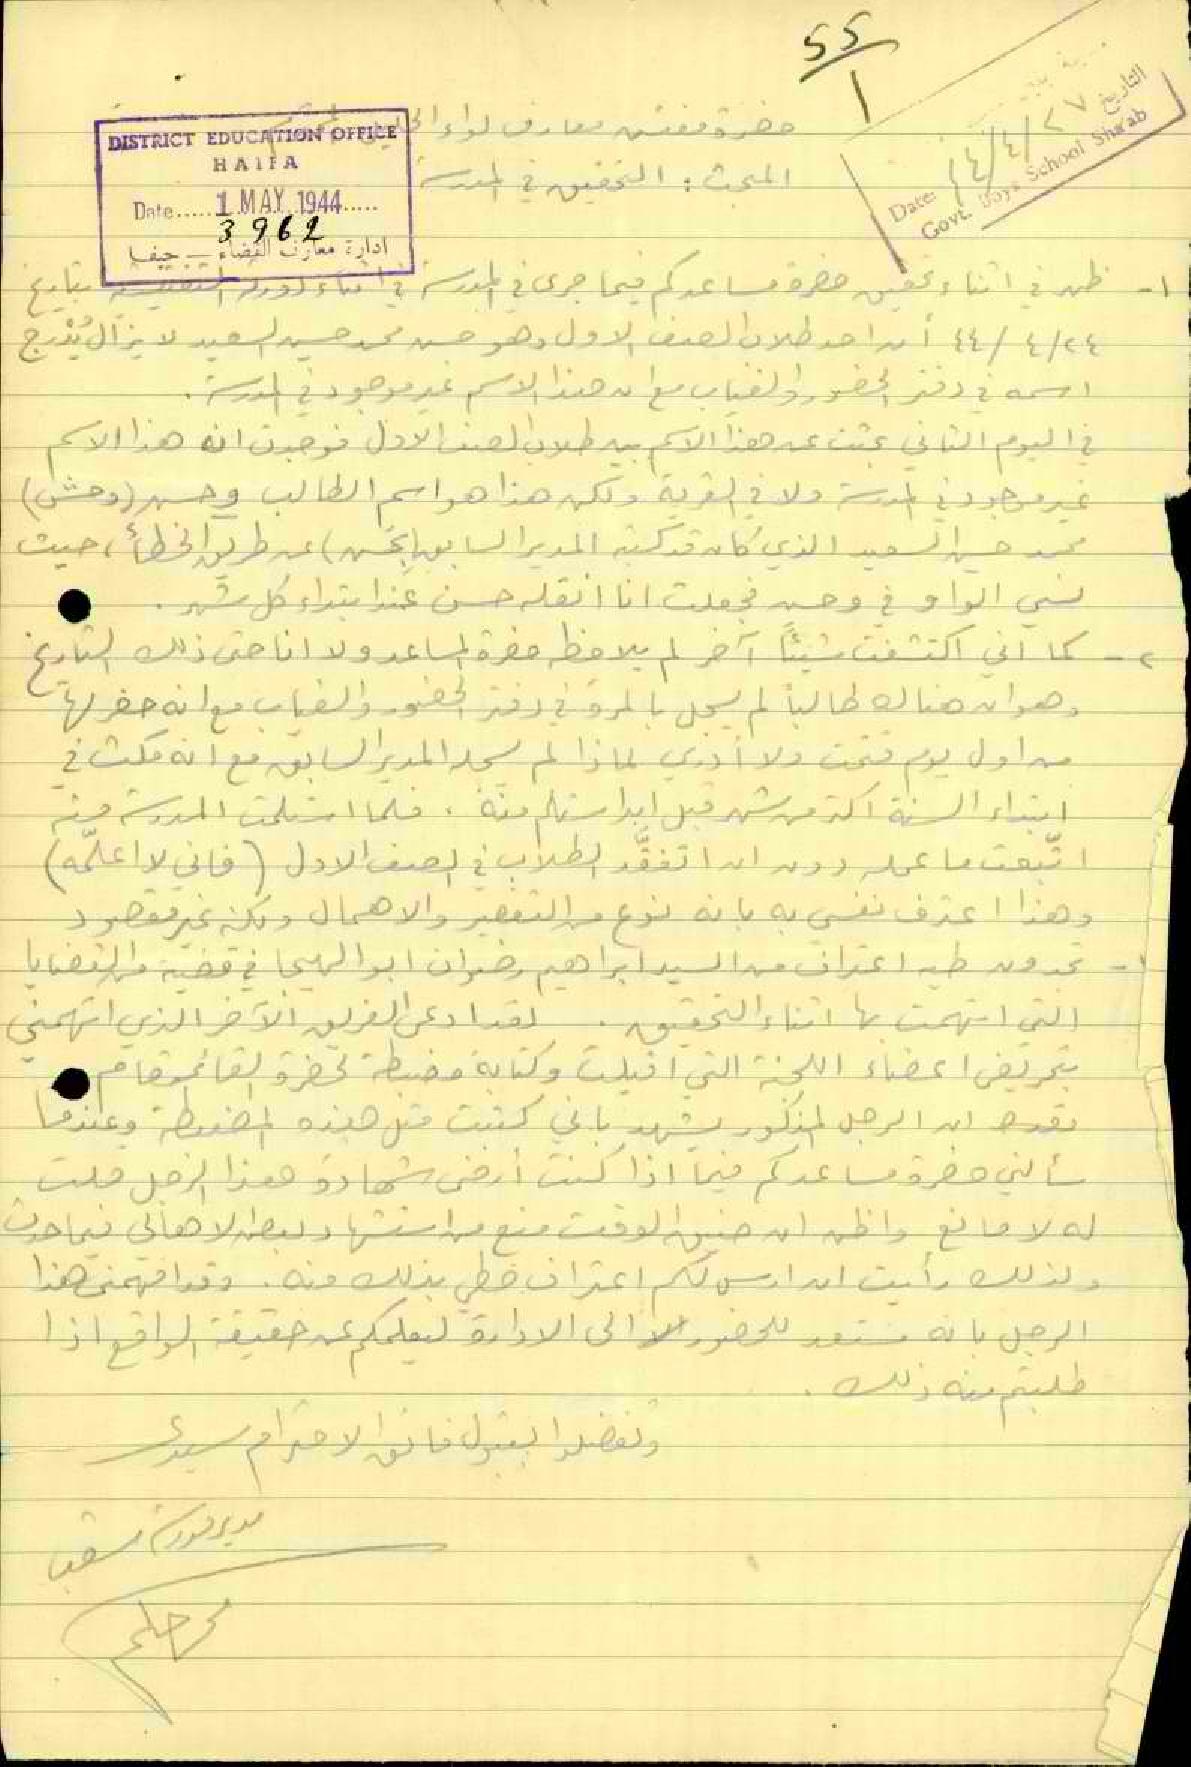 55
1
DISTRICT EDUCATION OFFICE
HAIFA
Date..... 1 MAY 1944.....
3962
ادارة معارف القضاء – حيفا
التاريخ ٢٧/٤/٤٤
Date:
Govt. Boys School Sha'ab
حضرة مفتش معارف لواء الجليل المحترم
المبحث : التحقيق في المدرسة
١- ظهر في اثناء تحقيق حضرة مساعدكم فيما جرى في المدرسة في اثناء دورته التفتيشية بتاريخ
٢٤/٤/٤٤ أن احد طلاب الصف الاول وهو حسن محمد حسين السعيد لا يزال يُدْرج
اسمه في دفتر الحضور والغياب مع ان هذا الاسم غير موجود في المدرسة .
في اليوم الثاني بحثت عن هذا الاسم بين طلاب الصف الاول فوجدت انه هذا الاسم
غير موجود في المدرسة ولا في القرية ولكن هذا هو اسم الطالب وحسن (وحش)
محمد حسين السعيد الذي كان قد كتبه المدير السابق (بحسن) عن طريق الخطأ ، حيث
نسي الواو في وحسن فجعلت انا انقله حسن عند ابتداء كل شهر .
٢- كما اني اكتشفت شيئاً آخر لم يلاحظه حضرة المساعد ولا انا حتى ذلك التاريخ
وهو ان هناك طالباً لم يسجل بالمرة في دفتر الحضور والغياب مع انه حضر لها
من اول يوم فتحت ولا أدري لماذا لم يسجله المدير السابق مع انه مكث في
ابتداء السنة اكثر من شهر قبل ان استلم منه . فلما استلمت المدرسة منه
اتّبعت ما عمله دون ان اتفقَّد الطلاب في الصف الاول (فاني لا اعلّمه)
وهذا اعترف نفسي به بانه نوع من التقصير والاهمال ولكنه غير مقصود
تجدون طيه اعتراف من السيد ابراهيم رضوان ابو الهيجا في قضية من القضايا
التي اتهمت بها اثناء التحقيق . لقد ادعى الفريق الآخر الذي اتهمني
بتحريض اعضاء اللجنة التي اقيلت وكتابة مضبطة لحضرة القائمقام
ان الرجل المذكور يشهد باني كتبت مثل هذه المضبطة وعندما
سألني حضرة مساعدكم فيما اذا كنت أرضى شهادة هذا الرجل قلت
له لا مانع واظن ان ضيق الوقت منع من استشهاد بعض الاهالي فيما حدث
ولذلك رأيت ان ارسل لكم اعتراف خطي بذلك منه . وقد افهمني هذا
الرجل بانه مستعد للحضور الى الادارة ليعلمكم عن حقيقة الواقع اذا
طلبتم منه ذلك .
وتفضلوا بقبول فائق الاحترام سيدي
مدير مدرسة شعب